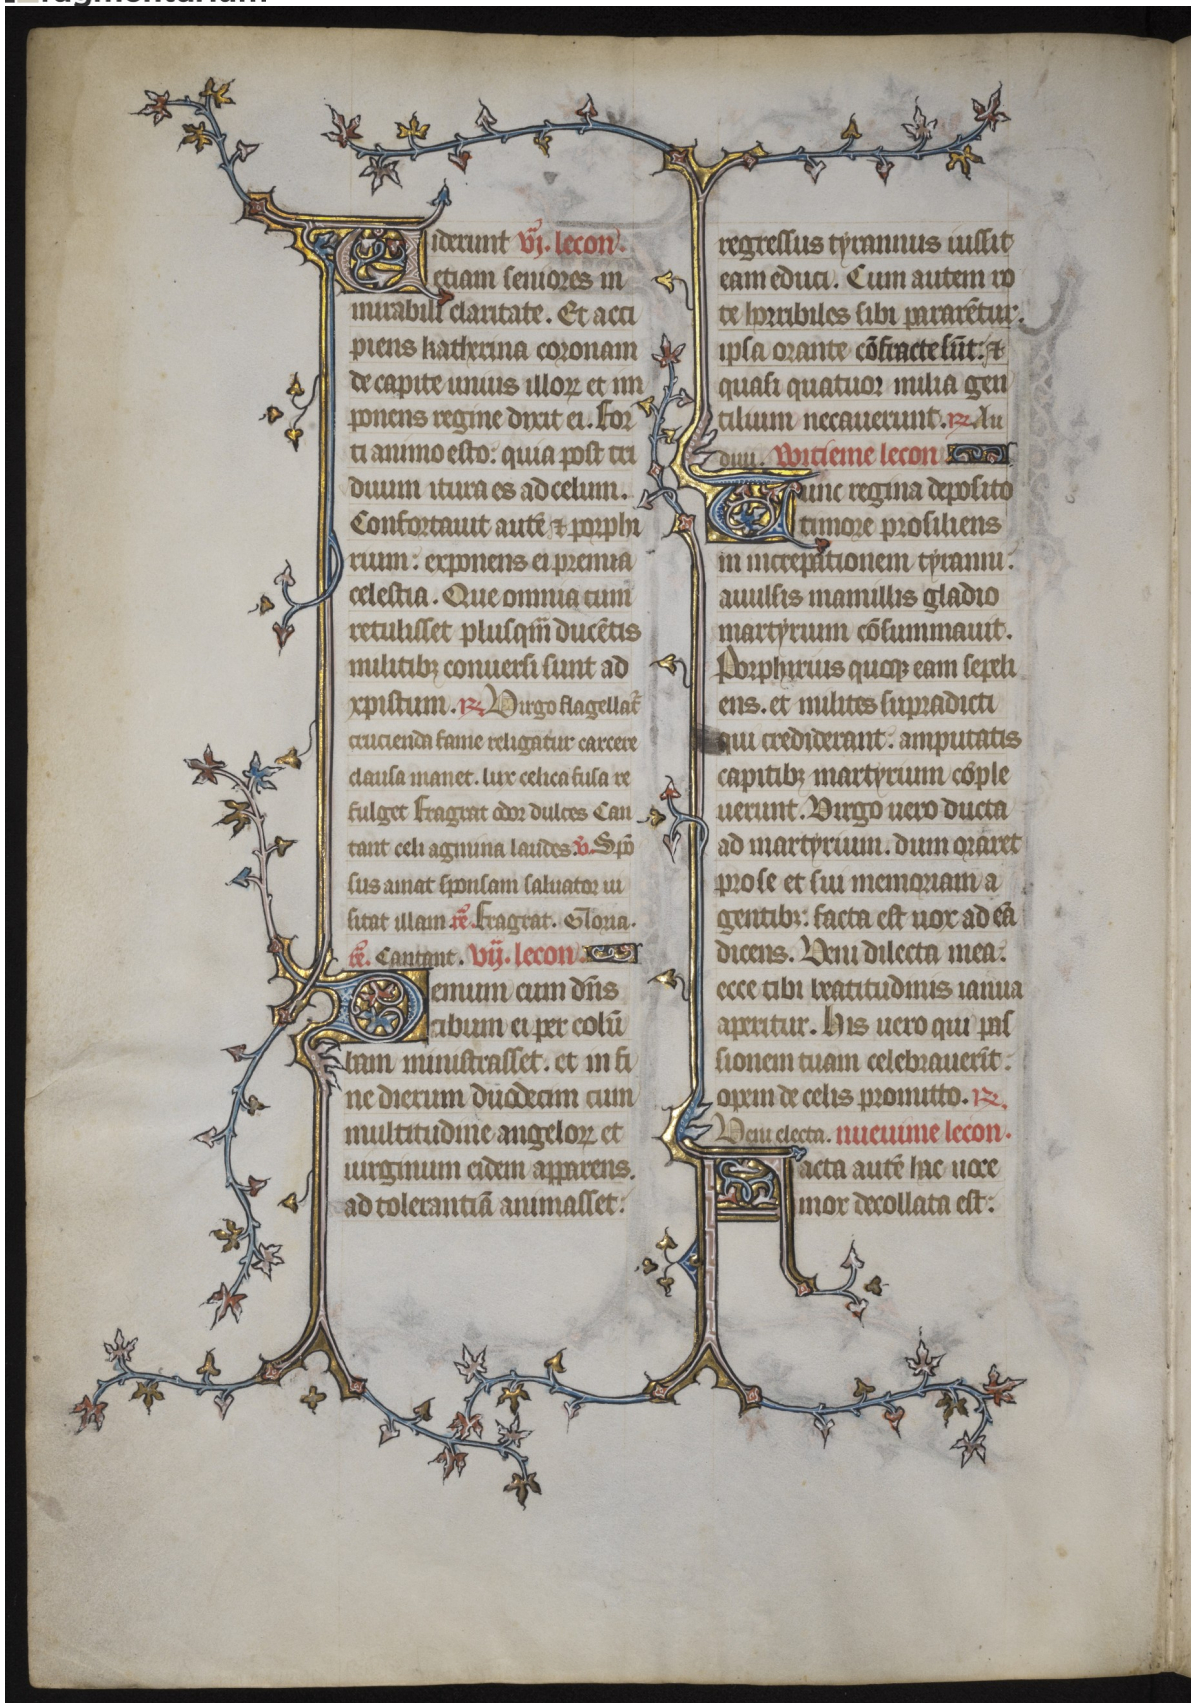 Fragmentarium
Uiderunt vi. lecon.
etiam seniores in
mirabili claritate. Et acci
piens katherina coronam
de capite unius illoꝝ et im
ponens regine dixit ei. For
ti animo esto: quia post tri
duum itura es ad celum.
Confortauit autē ⁊ porphi
rium: exponens ei premia
celestia. Que omnia cum
retulisset plusqm̄ ducētis
militibꝫ conuersi sunt ad
xpistum. ℟. Uirgo flagellat᷑
crucienda fame religatur carcere
clausa manet. lux celica fusa re
fulget Fragrat odor dulces Can
tant celi agmina laudes v̄. Spō
sus amat sponsam saluator ui
sitat illam. rē. Fragrat. Gloria.
rē. Cantant. vij. lecon.
Demum cum dn̄s
cibum ei per colū
bam ministrasset. et in fi
ne dierum duodecim cum
multitudine angeloꝝ et
uirginum eidem apparens.
ad tolerantiā animasset:
regressus tyrannus iussit
eam educi. Cum autem ro
te horribiles sibi pararētur.
ipsa orante cōfracte sūt: ⁊
quasi quatuor milia gen
tilium necauerunt. ℟. Au
diui. Witieme lecon
Tunc regina deposito
timore prosiliens
in increpationem tyranni:
auulsis mamillis gladio
martyrium cōsummauit.
Porphirius quoqꝫ eam sepeli
ens. et milites supradicti
qui crediderant: amputatis
capitibꝫ martyrium cōple
uerunt. Uirgo uero ducta
ad martyrium. dum oraret
pro se et sui memoriam a
gentibꝫ: facta est uox ad eā
dicens. Ueni dilecta mea:
ecce tibi beatitudinis ianua
aperitur. His uero qui pas
sionem tuam celebrauerīt:
opem de celis promitto. ℟.
Ueni electa. nueuime lecon.
Facta autē hac uoce
mox decollata est: